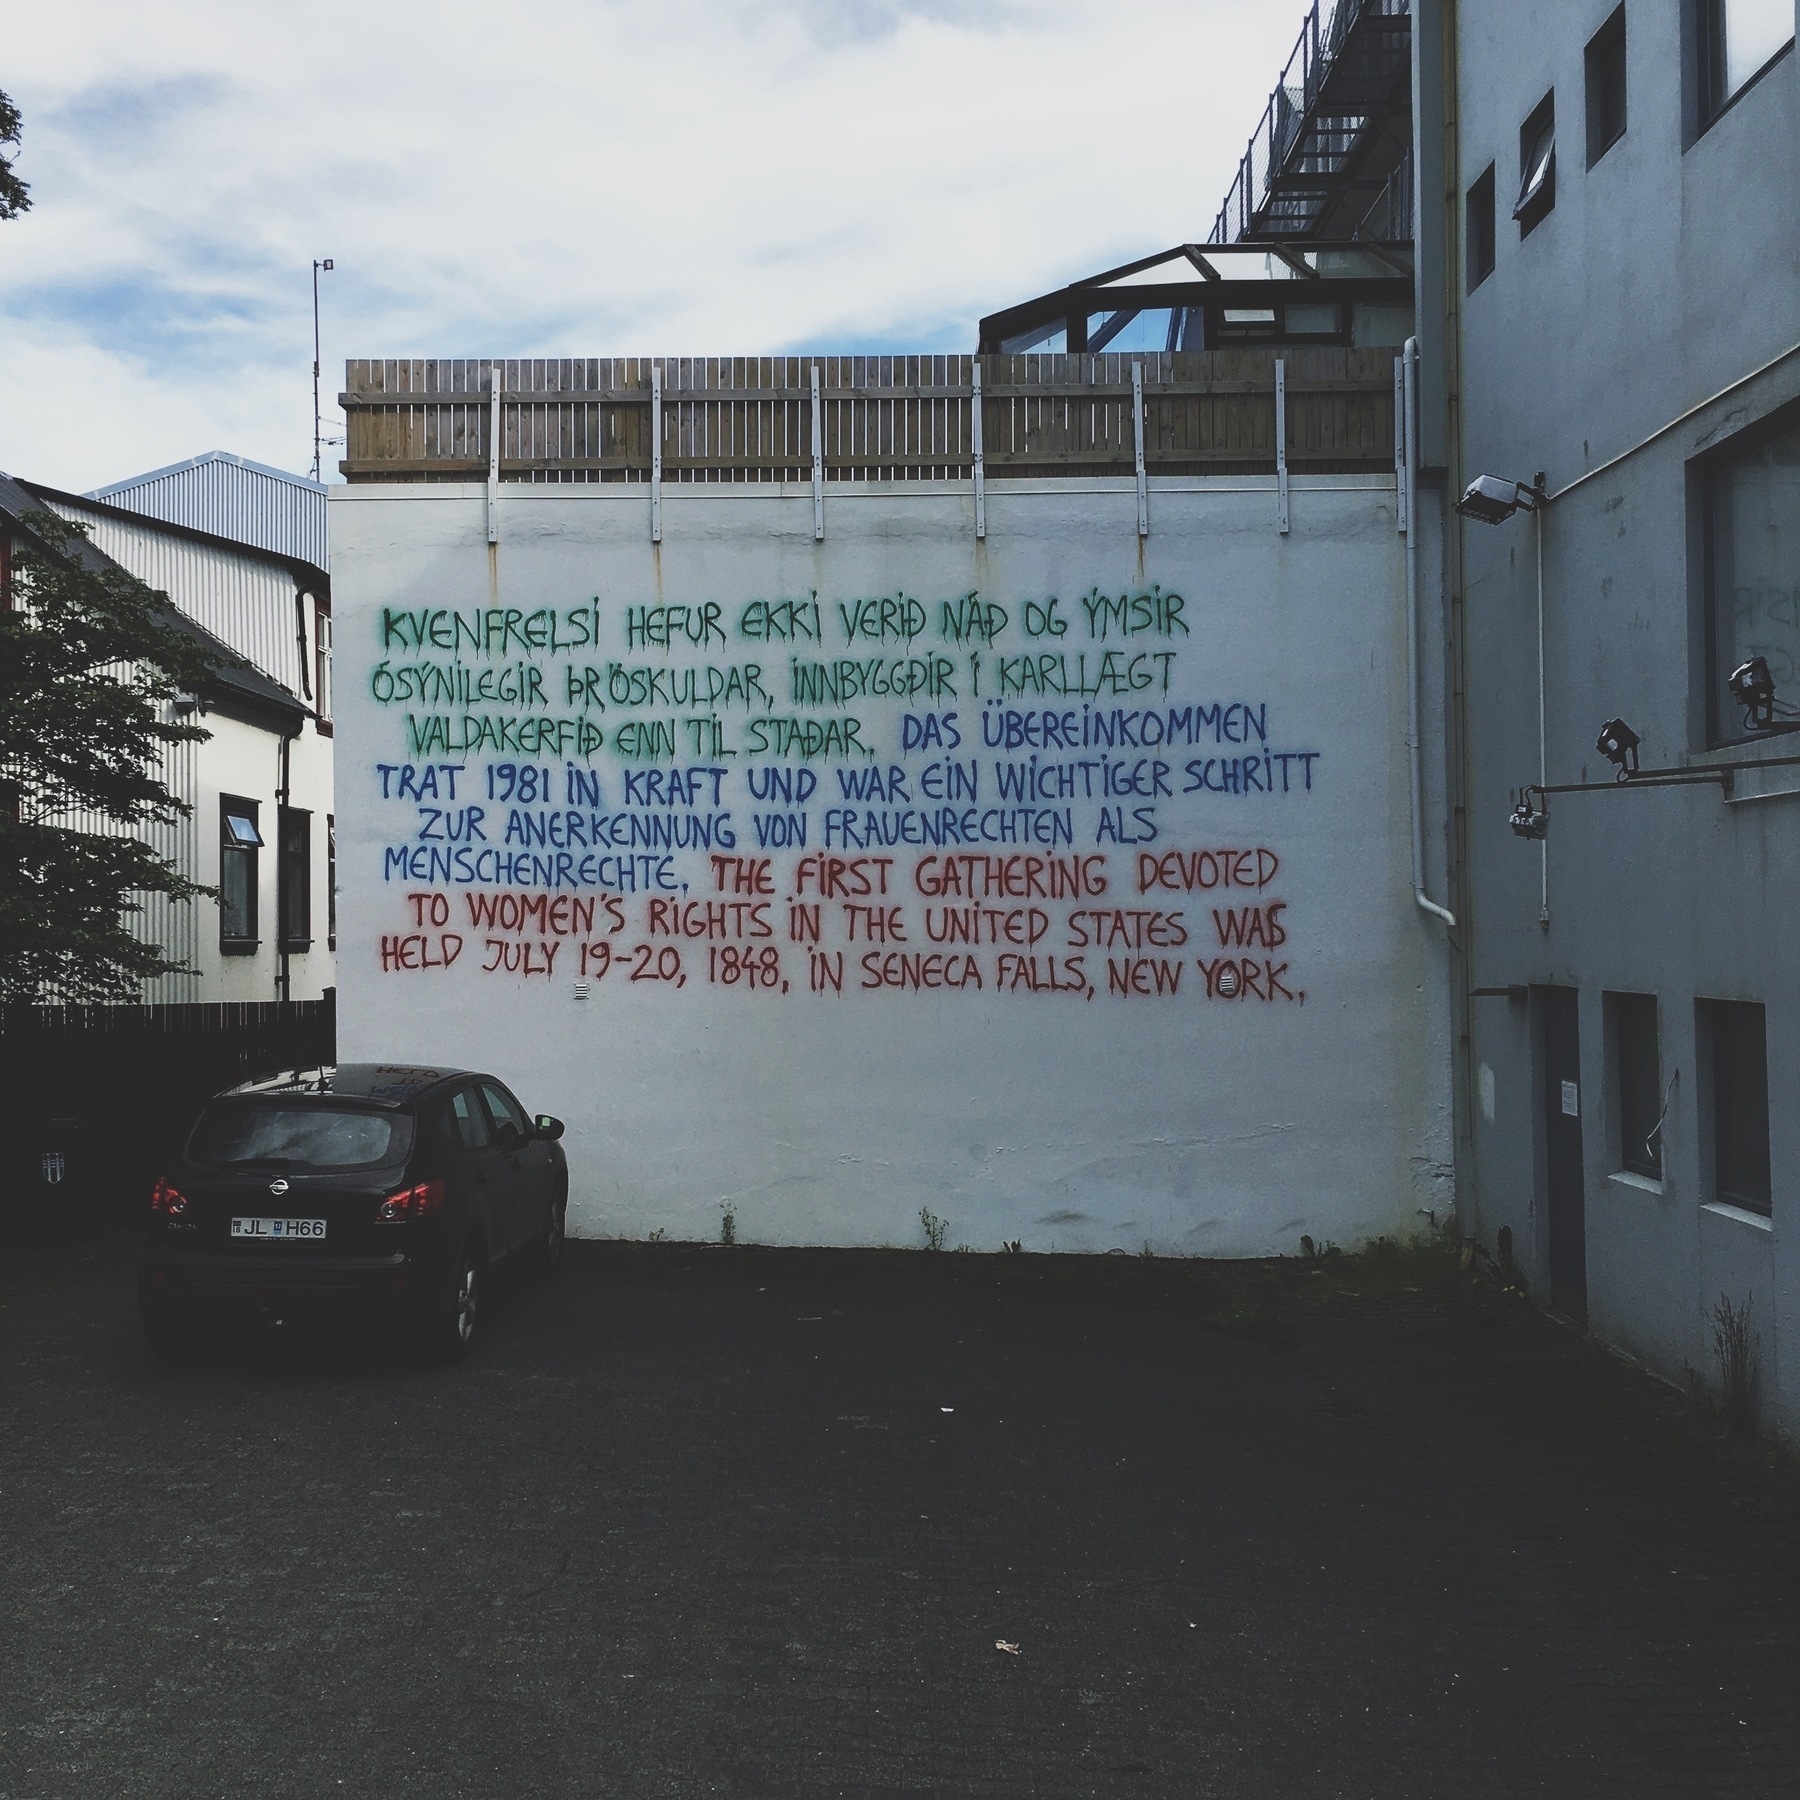 KVENFRELSI HEFUR EKKI VERIÐ NÁÐ OG ÝMSIR
ÓSÝNILEGIR ÞRÖSKULDAR, INNBYGGÐIR Í KARLLÆGT
VALDAKERFIÐ ENN TIL STAÐAR. DAS ÜBEREINKOMMEN
TRAT 1981 IN KRAFT UND WAR EIN WICHTIGER SCHRITT
ZUR ANERKENNUNG VON FRAUENRECHTEN ALS
MENSCHENRECHTE. THE FIRST GATHERING DEVOTED
TO WOMEN'S RIGHTS IN THE UNITED STATES WAS
HELD JULY 19-20, 1848, IN SENECA FALLS, NEW YORK.
JL H66